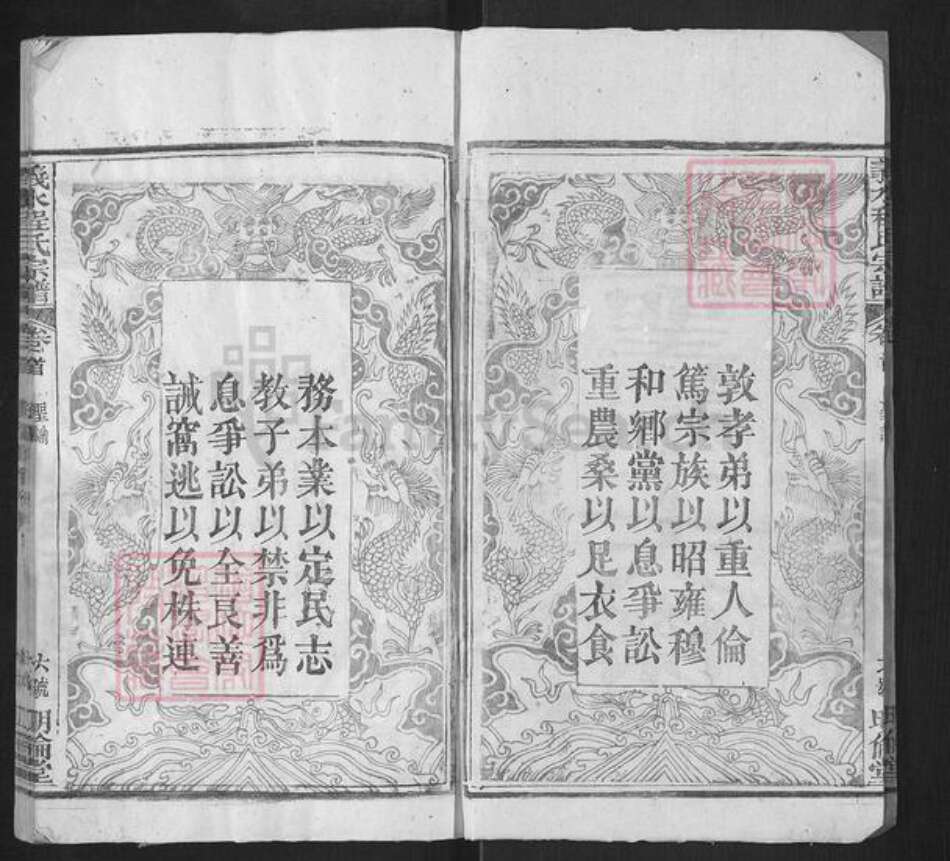 敦孝弟以重人倫
篤宗族以昭雍穆
和鄉黨以息爭訟
重農桑以足衣食
務本業以定民志
教子弟以禁非爲
息爭訟以全良善
誡窩逃以免株連
義水程氏宗譜
卷首
聖諭
大號
明倫堂